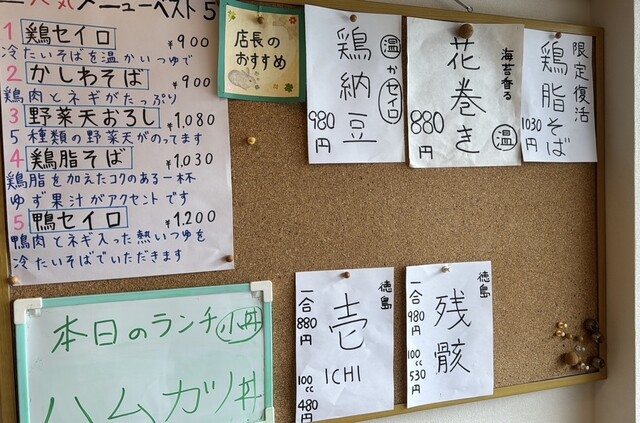 人気メニューベスト5
1 鶏セイロ ¥900
冷たいそばを温かいつゆで
2 かしわそば ¥900
鶏肉とネギがたっぷり
3 野菜天おろし ¥1,080
5種類の野菜天がのってます
4 鶏脂そば ¥1,030
鶏脂を加えたコクのある一杯
ゆず果汁がアクセントです
5 鴨セイロ ¥1.200
鴨肉とネギ入った熱いつゆを
冷たいそばでいただきます
店長の
おすすめ
鶏納豆
温かセイロ
980円
海苔香る
花巻き
温
880円
限定復活
鶏脂そば
1030円
本日のランチ 小丼
ハムカツ丼
徳島
壱
ICHI
一合880円
100cc480円
徳島
残骸
一合980円
100cc530円